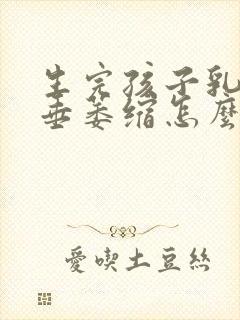 生完孩子乳
垂萎缩怎麼
愛喫土豆絲